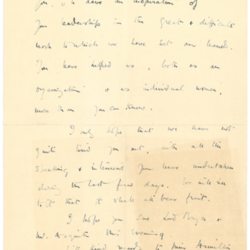 you. the inspiration of
your leadership in the great & difficult
work to which we have set our hands.
You have helped us, both as an
organisation & as individual women,
more than you can know.
I only hope that we have not
quite tired you out, with all the
speaking & interviews you have undertaken
during the last few days. We will see
to it that it shall all bear fruit.
I hope you see Lord
Mr. this evening.